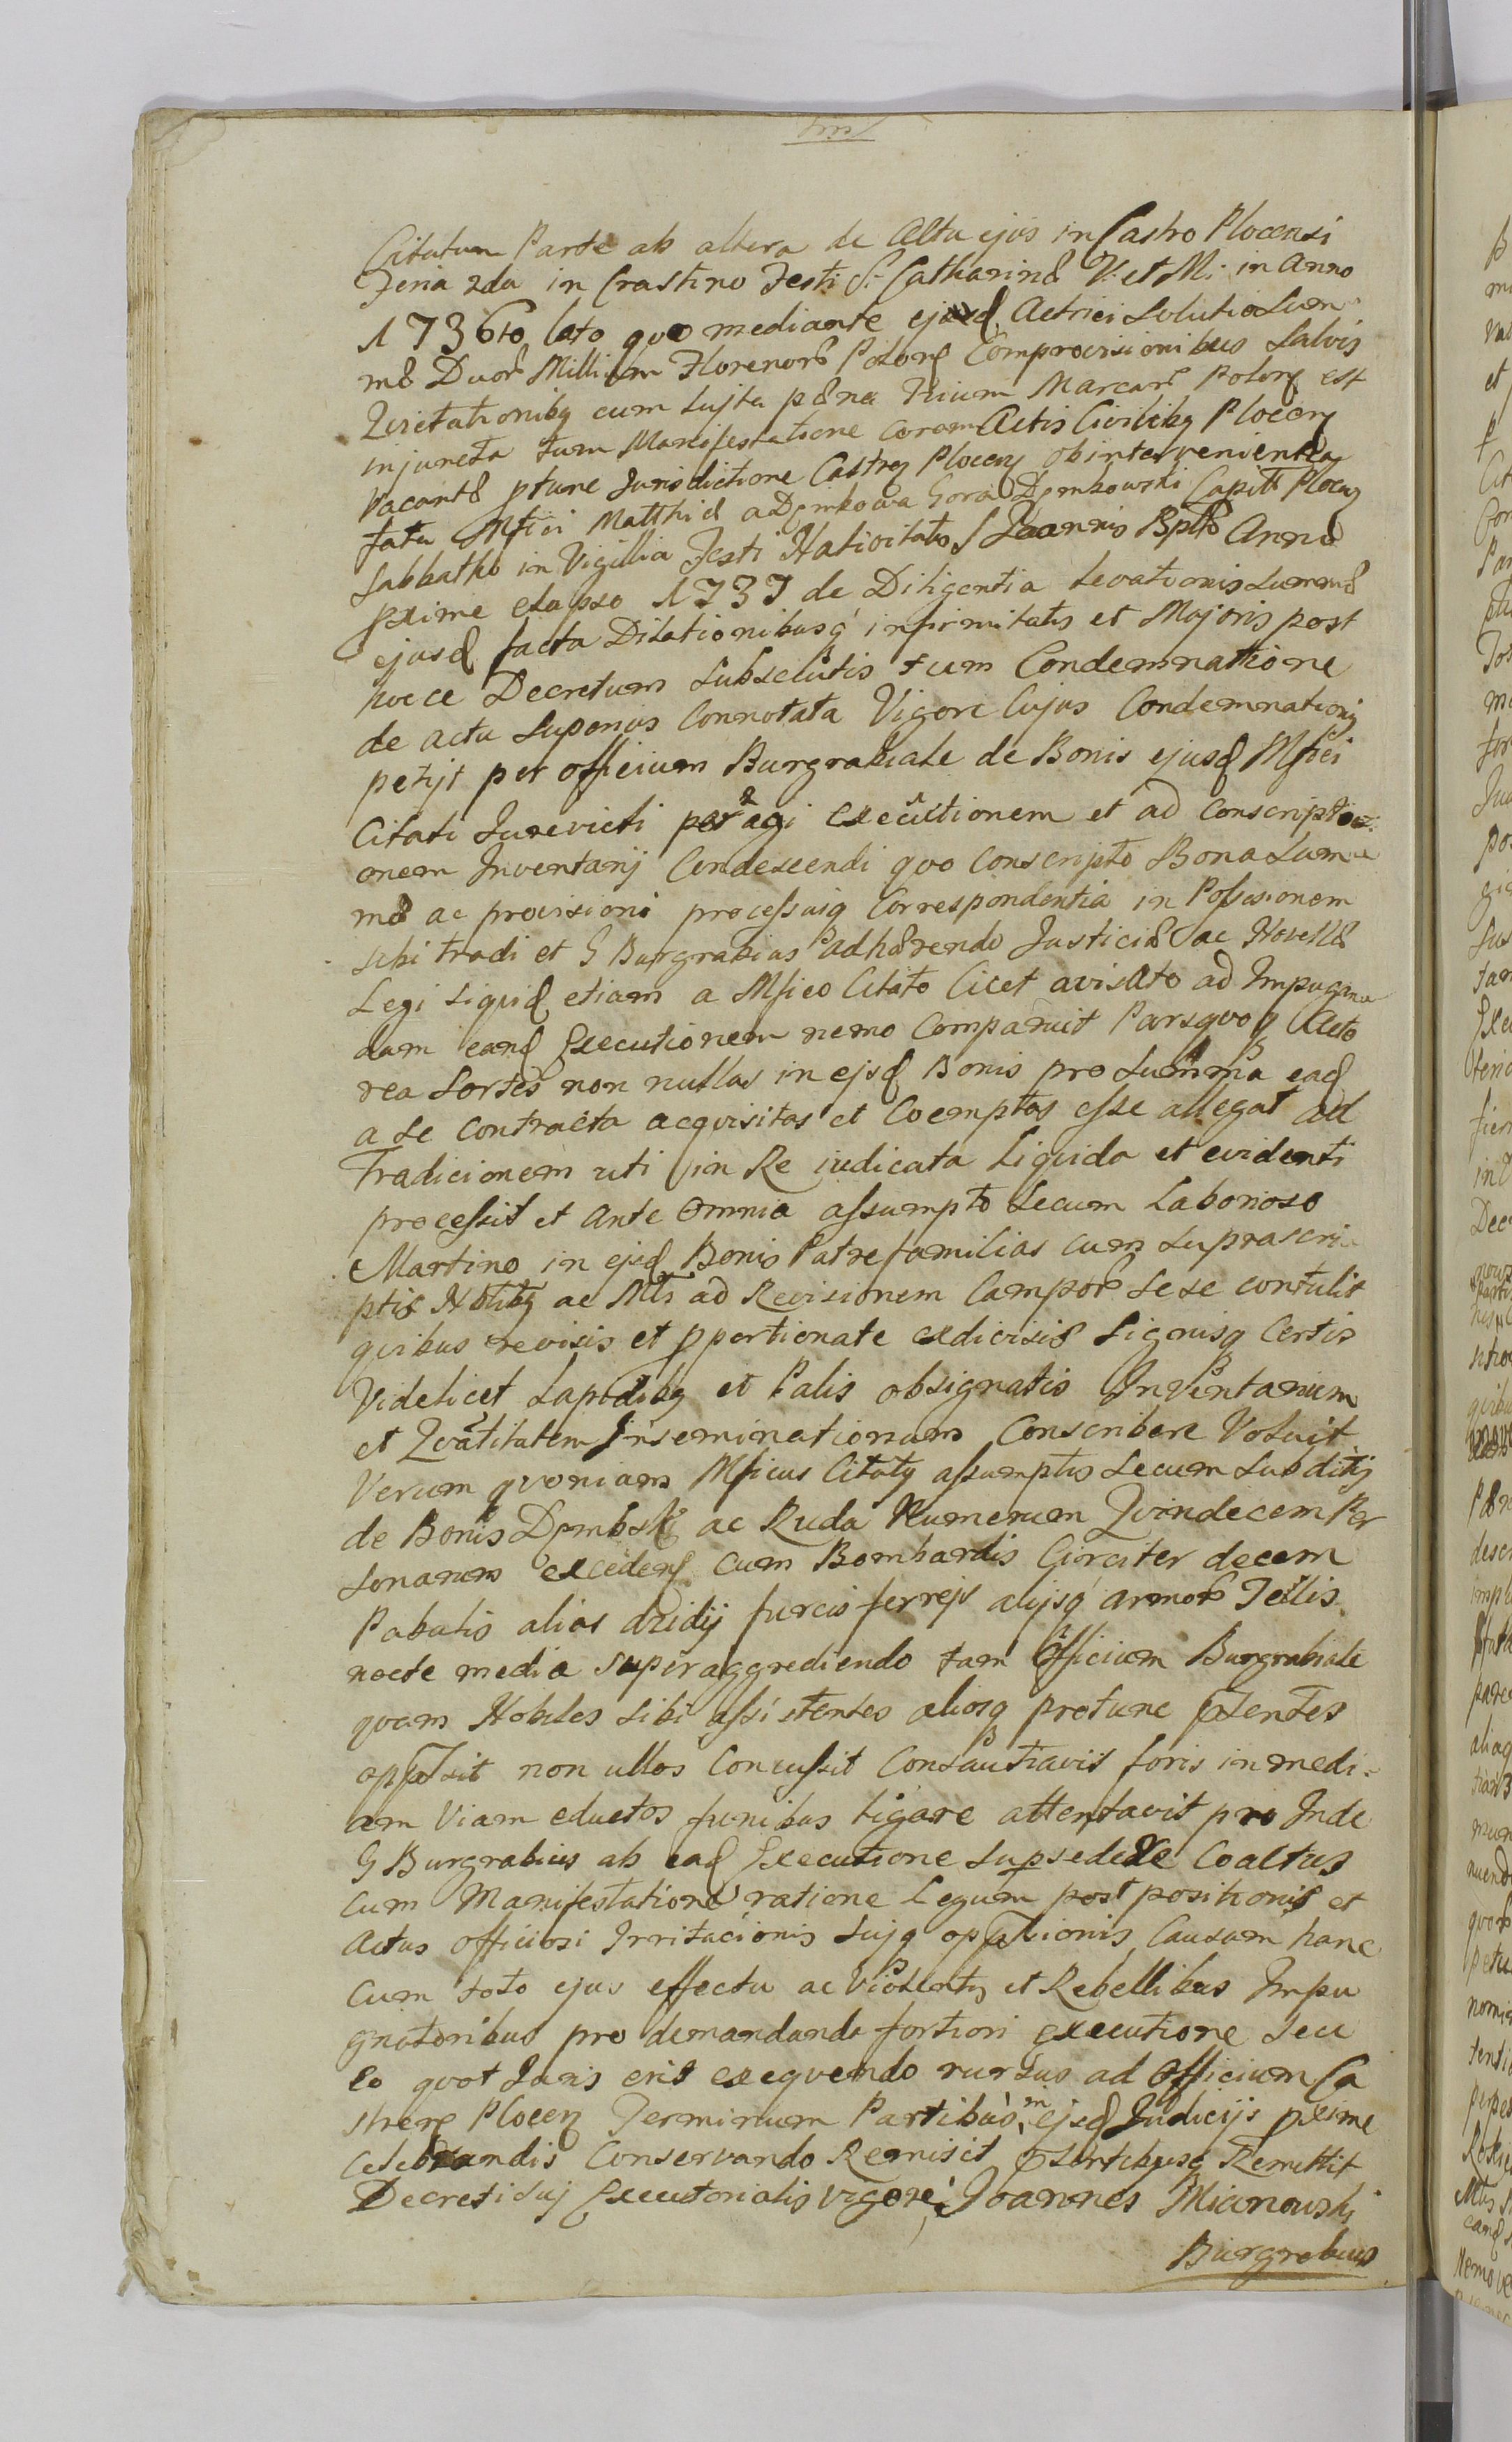 Citatum Parte ab altera de Actu ejus in Castro Plocensi
Feria 2da in Crastino Festi S. Catharinæ V: et M: in Anno
1736to lato quo mediante ejusd Actrici Solutio Sum
mæ Duor Millium Florenor Polon Comprovisionibus Salvis
Qvietationibq cum Lujta pæna Trium Marcar Polon est
injuncta tum Manifestatione coram Actis Civilibq Plocen
Vacantæ ptunc Jurisdictione Castren Plocen ob intervenientia
fata Mfici Matthiæ a Dęmbowa Gora Dęmbowski Capit Plocen
Sabbatho in Vigillia Festi Nativitatis S Joannis Bptæ Anno
pxime elapso 1737 de Diligentia Levationis Summæ
ejusd facta Dilationibusq infirmitatis et Majoris post
hocce Decretum Subsecutis tum Condemnatione
de actu Superius Connotata Vigore Cujus Condemnationis
petijt per officium Burgrabiale de Bonis ejusd Mfici
Citati Jurevicti peragi Executionem et ad Conscripti
onem Inventarij Condescendi quo Conscripto Bona Sum
mæ ac provisioni processuiq Correspondentia in Possesionem
sibi tradi et G Burgrabius adhærendo Justiciæ ac Novellæ
Legi Siquid etiam a Mfico Citato licet avisato ad Impugnan
dam eand Executionem nemo Comparuit Parsquoq Acto
rea Sortes non nullas in ejsd Bonis pro Summa ead
a se contracta acquisitas et Coemptas esse allegat ad
Tradicionem uti in Re iudicata Liquida et evidenti
processit et Ante Omnia assumpto Secum Laborioso
Martino in ejsd Bonis Patrefamilias cum Suprascri
ptis Nblibq ac Mtri ad Revisionem Campor Sese contulit
quibus revisis et pportionate exdivisis Signisq Certis
Videlicet Lapidibq et Palis obsignatis Inventarium
et Qvantitatem Inseminationum Conscribere Voluit
Verum quoniam Mficus Citatq assumptis Secum Subditis
de Bonis Dęmbsk ac Ruda Numerum Qvindecem Per
sonarum exceden cum Bombardis Circiter decem
Pabatis alias dzidij furcis ferrejs alijsq armor Tellis
nocte media superaggrediendo tam Officium Burgrabiale
quam Nobiles sibi assistentes aliosq protunc ptentes
oppssit non ullos Concussit Consauciavit foris in medi
am Viam eductos funibus ligare attentavit pro Inde
G Burgrabius ab ead Executione Supsedere Coactus
cum Manifestatione ratione Legum post positionis et
Actus officiosi Irritacionis Sujq oppssionis Causam hanc
Cum toto ejus effectu ac Violentis et Rebellibus Impu
gnatoribus pro demandanda fortiori executione seu
eo quot Juris erit exequendo rursus ad Officium Ca
stren Plocen Terminum Partibus in ejsd Judicijs pxime
Celebrandis Conservando Remisit Remittit
Decreti Suj Executorialis vigore Joannes Mianowski
Burgrabius